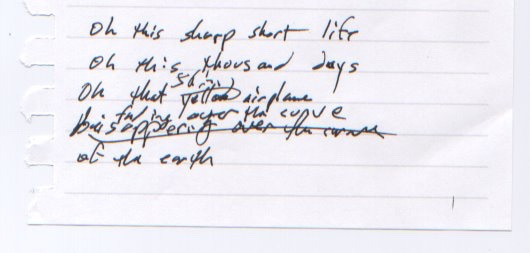 oh this sharp short life
oh this thousand days
Oh that yellow airplane
fading over the curve
Disappering over the curve
of the earth